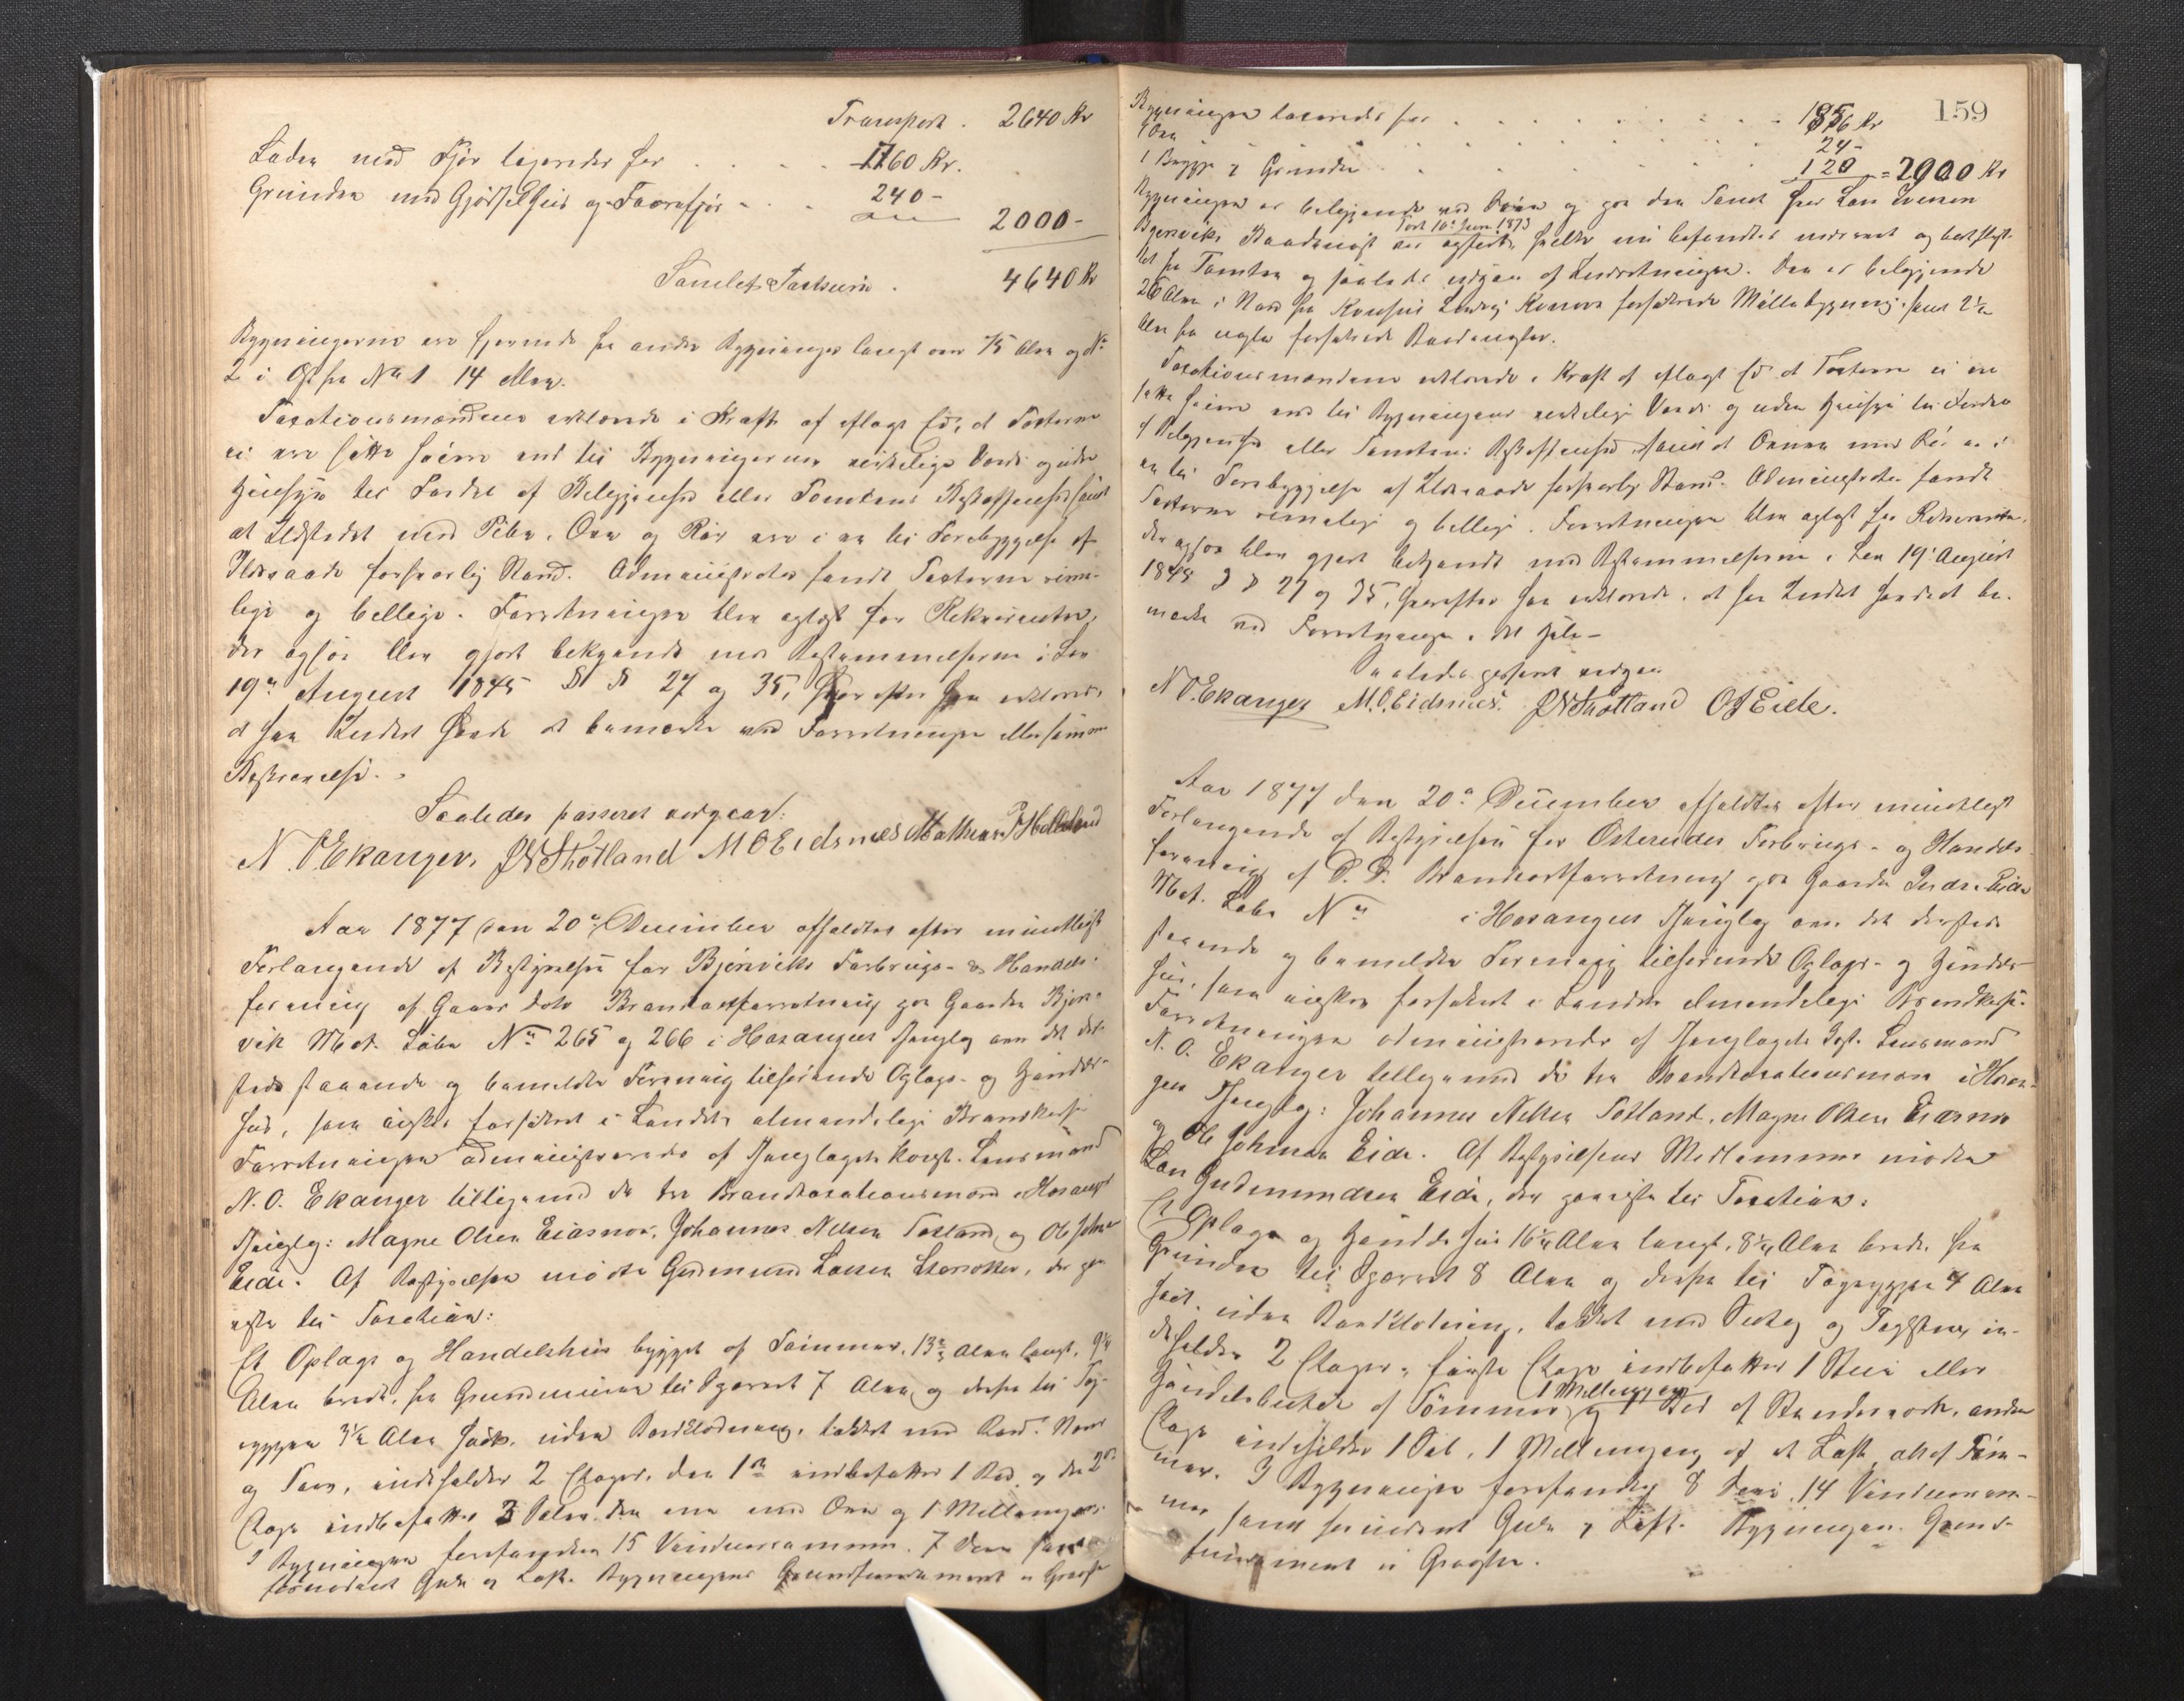 Transport . 2640 Kr
Laden med Fjøs taxeredes for . . . . 1760 Kr.
Grunden med Gjødselhus og Faarefjøs - . . 240 -
2000 -
Samlet Taxtsum . 4640 Kr
Bygningerne ere fjernede fra andre Bygninger langt over 75 Alen og No
2 i Øst fra No 1 14 Alen.
Taxationsmændene erklærede i Kraft af aflagt Ed, at Taxterne
ei ere satte høiere end til Bygningernes virkelige Værdi og uden
Hensyn til Fordel af Beliggenhed eller Tomtens Beskaffenhed samt
at Ildstedet med Pibe, Ovn og Rør ere i en til Forebyggelse af
Ildsvaade forsvarlig Stand. Administrator fandt Taxterne rime-
lige og billige. Forretningen blev oplæst for Rekvirenten,
der ogsaa blev gjort bekjendt med Bestemmelserne i Lov
19de August 1845 § § 27 og 35, hvorefter han erklærede,
at han Intet havde at bemærke ved Forretningen eller sammes
Beskrivelse.
Saaledes passeret vidner:
N. O. Ekanger. J N Thotland M O Eidsnes Mathias P Helleland
Aar 1877 den 20de December afholdtes efter mindtligt
Forlangende af Bestyrelsen for Bjørsviks Forbrugs- & Handels-
forening af Gaar dato Brandtaxtforretning paa Gaarden Bjørs-
vik Mat. Løbe No 265 og 266 i Hosanger Thinglag over det der-
steds staaende og bemeldte Forening tilhørende Oplags- og Handels-
hus, som ønskes forsikret i Landets almindelige Brandkasse
Forretningen administreredes af Thinglagets konst. Lensmand
N. O. Ekanger tilligemed de tre Brandtaxationsmænd i Hosanger
Thinglag: Magne Olsen Eidsnes, Johannes Nilsen Totland, og Ole Johns
Eide. Af Bestyrelsen mødte Gudmund Larsen, der paa
viste til Taxation:
Et Oplags og Handelshus bygget af Tømmer, 13 Alen langt, 9¼
Alen bredt, fra Grundmuren til Sparret 7 Alen, og derfra til Tag-
ryggen 3½ Alen høit, uden Bordklædning, tækket med Bord, Næver
og Torv, indeholder 2 Etager, den 1ste indbefatter 1 Bod, og den 2den
Etage indbefatter 3 Saler, den ene med Ovn og 1 Mellemgang.
I Bygningen forefandtes 15 Vinduesrammer, 7 Døre samt
fornødent Gulv og Loft. Bygningens Grundfundament er Graasten
159
Bygningen taxeredes for . . . . . . . - 1856 Kr
1 Ovn . . . . . . . 24 -
1 Brygge & Grunden . . . . . 120 = 2000 Kr
Bygningen er beliggende ved Søen og paa den Tomt hvor Lars Iversen
Bjørsviks Baadnøst var opført hvilke nu befandtes nedrevet og bortflyt-
Taxt 10de Juni 1873
tet fra Tomten og saaledes udgaar af Indretningen. Den er beliggende
20 Alen i Nord fra Konsul Ludvig Konows forsikrede Møllebygning, samt 2½
Alen fra nogle forsikrede Baadnøster.
Taxationsmændene erklærede i Kraft af aflagt Ed at Taxterne ei ere
satte høiere end til Bygningens virkelige Værdi og uden Hensyn til Fordel
af Beliggenhed eller Tomtens Beskaffenhed, samt at Ovnen med Rør er i
en til Forebyggelse af Ildsvaade forsvarlig Stand. Administrator fandt
Taxterne rimelige og billige. Forretningen blev oplæst for Rekvirenten,
der ogsaa blev gjort bekjendt med Bestemmelserne i Lov 19de August
1845 § § 27 og 35, hvorefter han erklærede, at han Intet havde at be-
mærke ved Forretningen i det Hele -
Saaledes passeret vidner
N O. Ekanger M. O. Eidsnes. J N Thotland O J Eide.
Aar 1877 den 20de December afholdtes efter mindtligt
Forlangende af Bestyrelsen for Østereides Forbrugs- og Handels-
forening af D. D. Brandtaxtforretning paa Gaarden Indre Eide
Mat. Løbe No i Hosanger Thinglag over det dersteds
staaende og bemeldte Forening tilhørende Oplags- og Handels-
hus, som ønskes forsikret i Landets almindelige Brandkasse.
Forretningen administreredes af Thinglagets konst. Lensmand
N. O. Ekanger tilligemed de tre Brandtaxationsmænd i Hosan-
ger Thinglag: Johannes Nilsen Totland, Magne Olsen Eidsnes
og Ole Johnsen Eide. Af Bestyrelsens Medlemmer mødte
Lars Gudmundsen Eide, der paaviste til Taxation:
Et Oplags og Handels hus 16¼ Alen langt, 8¼ Alen bredt, fra
Grunden til Sparret 8 Alen og derfra til Tagryggen 4 Alen
høit, uden Bordklædning, tækket med Sutag og Tagsten, in-
deholder 2 Etager, første Etage indbefatter 1 Stue eller
Handelsbutik af Tømmer, 1 Mellemgang og 1 Bod af Bindværk, anden
Etage indeholder 1 Sal, 1 Mellemgang og et Loft, alt af Tøm-
mer. I Bygningen forefandtes 8 Døre, 14 Vinduesram-
mer samt fornødent Gulv og Loft. Bygningens Grund-
fundament er Graasten.